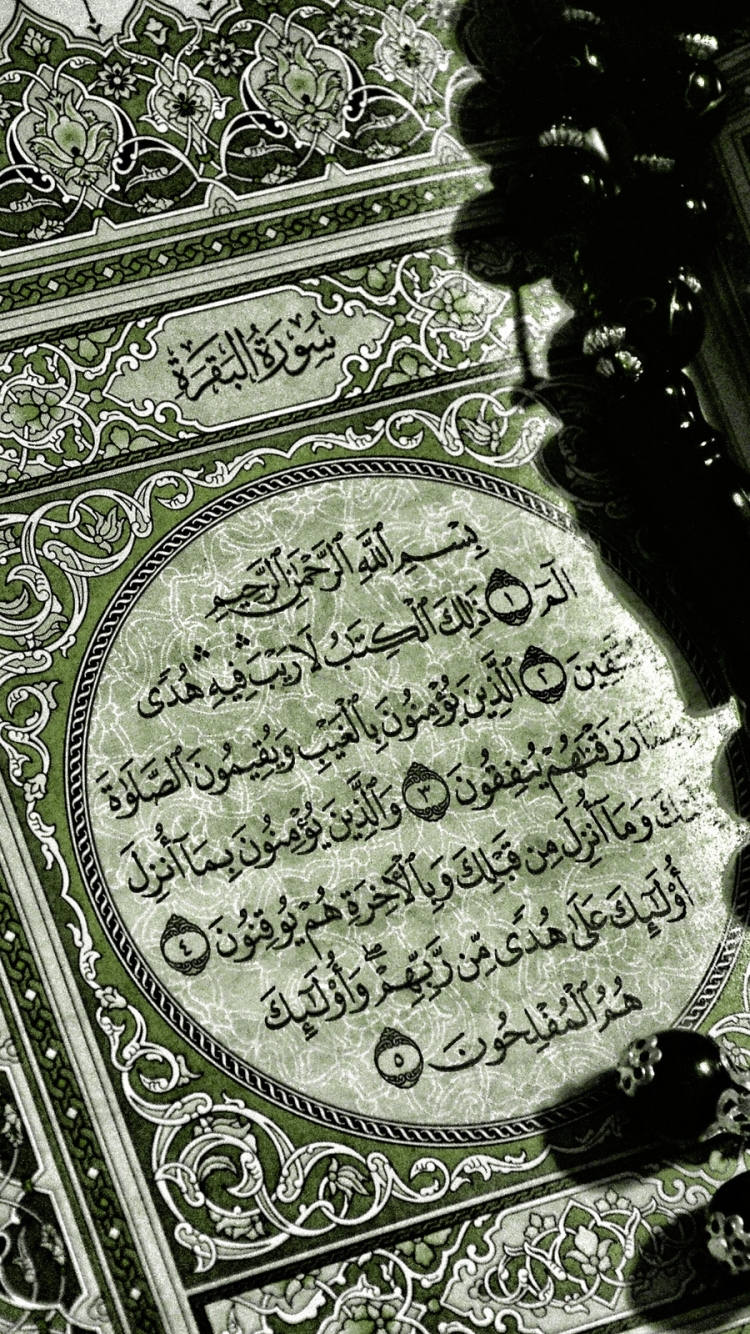 سُورَةُ الْبَقَرَةِ
بِسْمِ ٱللَّهِ ٱلرَّحْمَٰنِ ٱلرَّحِيمِ
الٓمٓ ١ ذَٰلِكَ ٱلْكِتَٰبُ لَا رَيْبَ ۛ فِيهِ ۛ هُدًى
٢ ٱلَّذِينَ يُؤْمِنُونَ بِٱلْغَيْبِ وَيُقِيمُونَ ٱلصَّلَوٰةَ
رَزَقْنَٰهُمْ يُنفِقُونَ ٣ وَٱلَّذِينَ يُؤْمِنُونَ بِمَآ أُنزِلَ
وَمَآ أُنزِلَ مِن قَبْلِكَ وَبِٱلْءَاخِرَةِ هُمْ يُوقِنُونَ ٤
أُو۟لَٰٓئِكَ عَلَىٰ هُدًى مِّن رَّبِّهِمْ ۖ وَأُو۟لَٰٓئِكَ
هُمُ ٱلْمُفْلِحُونَ ٥